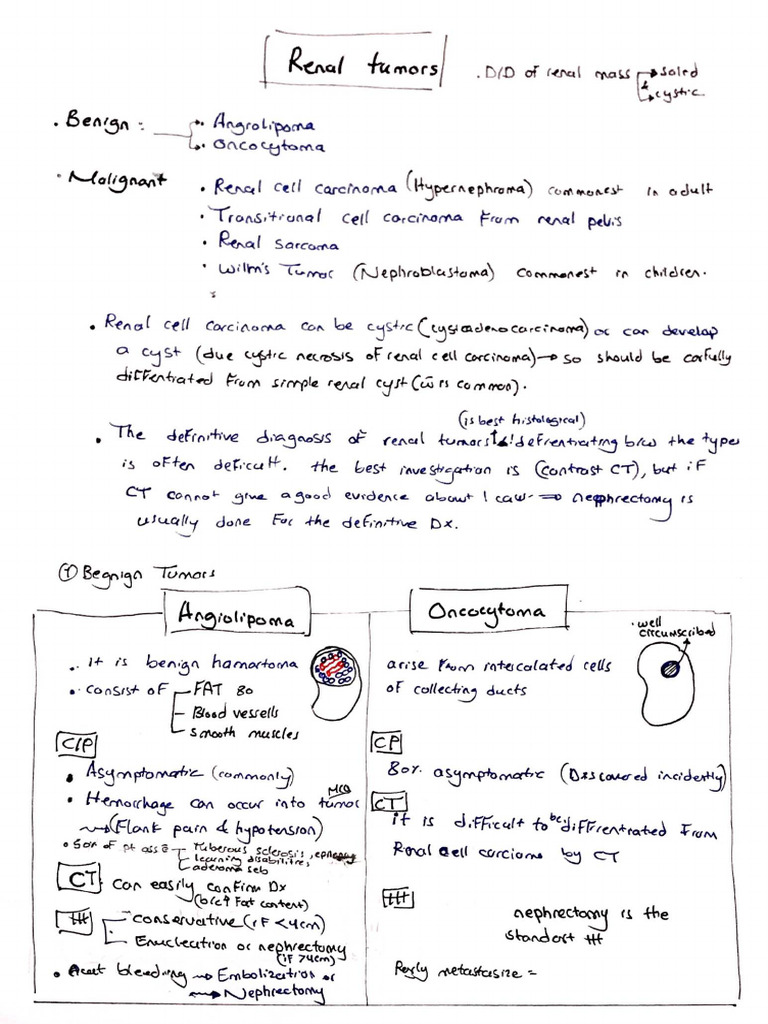 Renal tumors
. D/D of renal mass → soled
& → cystic
. Benign : → . Angiolipoma
→ . Oncocytoma
. Malignant . Renal cell carcinoma (Hypernephroma) commonest in adult
. Transitional cell carcinoma from renal pelvis
. Renal sarcoma
. Wilm's Tumor (Nephroblastoma) commonest in children.
. Renal cell carcinoma can be cystic (cystoadenocarcinoma) or can develop
a cyst (due cystic necrosis of renal cell carcinoma) → so should be carfully
diffentrated from simple renal cyst (w̄ is common).
(is best histological)
. The definitive diagnosis of renal tumors & defrentrating b/w the types
is often deficult. the best investigation is (contrast CT), but if
CT cannot give a good evidence about 1 caw ⇒ nephrectomy is
usually done for the definitive Dx.
① Begnign Tumors
Angiolipoma
. it is benign hamartoma
. consist of FAT 80
Blood vessells
smooth muscles
C/P
. Asymptomatic (commonly)
MCQ
. Hemorrhage can occur into tumor
→ (Flank pain & hypotension)
. 50% of pt ass c̄ Tuberous sclerosis, epilepsy
learning disabilities
adenoma seb
CT can easily confirm Dx
(b/c ↑ Fat content)
ttt conservative (iF < 4cm)
Enucleation or nephrectomy
(if > 4cm)
. Acut bleeding → Embolization or
→ Nephrectomy
Oncocytoma
. well
circumscribed
arise from intercalated cells
of collecting ducts
CP
80% asymptomatic (Discovered incidently)
CT
it is difficult to be diffrentrated from
Renal cell carcioma by CT
ttt
nephrectomy is the
standart ttt
Rarly metastasize =